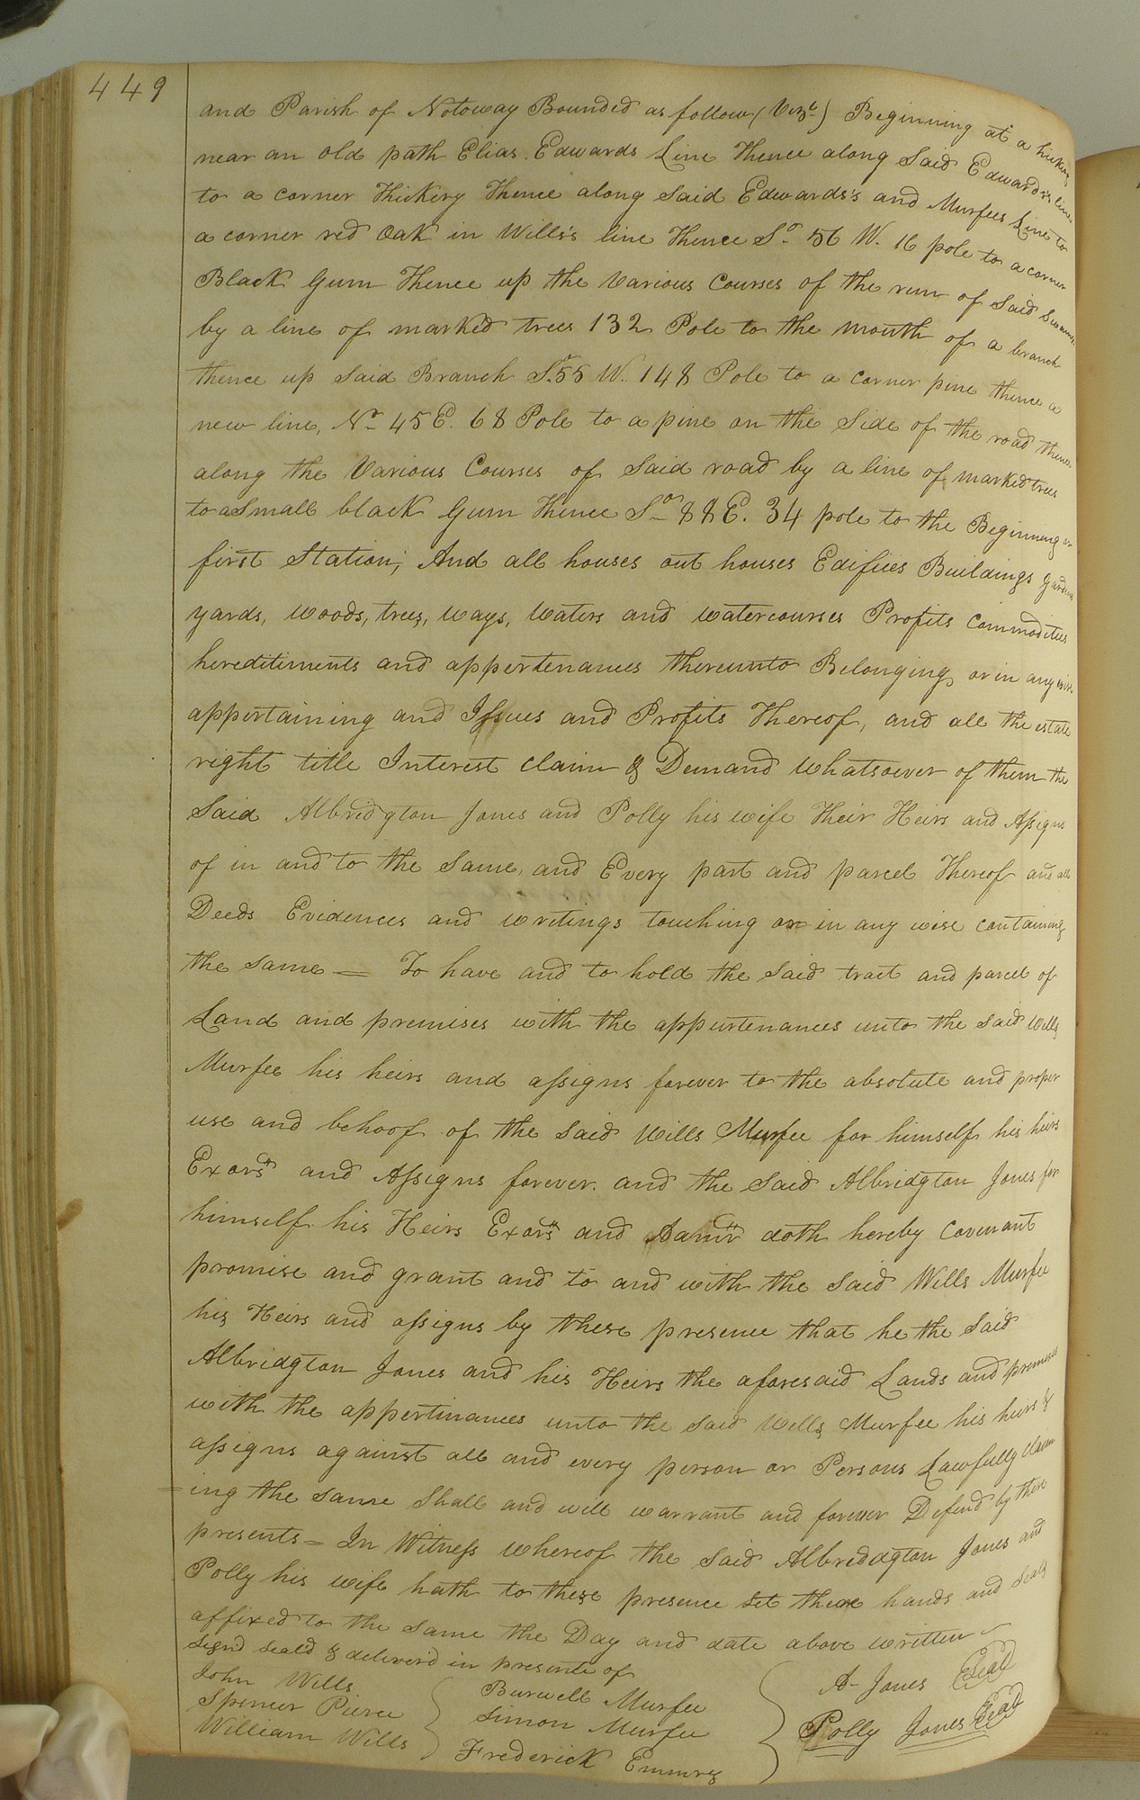 449
and Parish of Notoway Bounded as follow (Vizt) Beginning at a hickory
near an old path Elias Edwards Line Thence along Said Edwards's line
to a corner Hickery Thence along Said Edwards's and Murfees Line to
a corner red Oak in Wills's line Thence So 56 W. 16 pole to a corner
Black Gum Thence up the Various Courses of the run of Said Swamp
by a line of marked trees 132 Pole to the mouth of a branch
thence up Said Branch So 55 W. 148 Pole to a corner pine thence a
new line, No 45 E. 68 Pole to a pine on the Side of the road thence
along the Various Courses of Said road by a line of marked trees
to a Small black Gum Thence So 88 E. 34 pole to the Beginning or
first Station; And all houses out houses Edifices Buildings Gardens
yards, woods, trees, ways, waters and watercourses Profits Commodities
hereditiments and appertenances thereunto Belonging or in any wise
appertaining and Issues and Profits Thereof, and all the estate
right title Interest claim & Demand whatsoever of them the
Said Albredgton Jones and Polly his wife Their Heirs and Assigns
of in and to the Same, and Every part and parcel Thereof and all
Deeds Evidences and writings touching or in any wise containing
the same = To have and to hold the said tract and parcel of
Land and premises with the appurtenances unto the said Wills
Murfee his heirs and assigns forever to the absolute and proper
use and behoof of the Said Wills Murfee for himself his heirs
Exors and Assigns forever. and the Said Albridgton Jones for
himself his Heirs Exors and Admr doth hereby Covenant
promise and grant and to and with the Said Wills Murfee
his Heirs and assigns by these presence that he the Said
Albridgton Jones and his Heirs the aforesaid Lands and premises
with the appertinances unto the Said Wills Murfee his heirs &
assigns against all and every person or Persons Lawfully claim
=ing the same Shall and will warrant and forever Defend by these
presents = In Witness whereof the Said Albriddgton Jones and
Polly his wife hath to these presence set their hands and Seals
affixed to the same the Day and date above written
Signd Seald & deliverd in presente of
John Wills
Spencer Pierce
William Wills
Burwell Murfee
Simon Murfee
Frederick Emmry
A Jones Seal
Polly Jones Seal